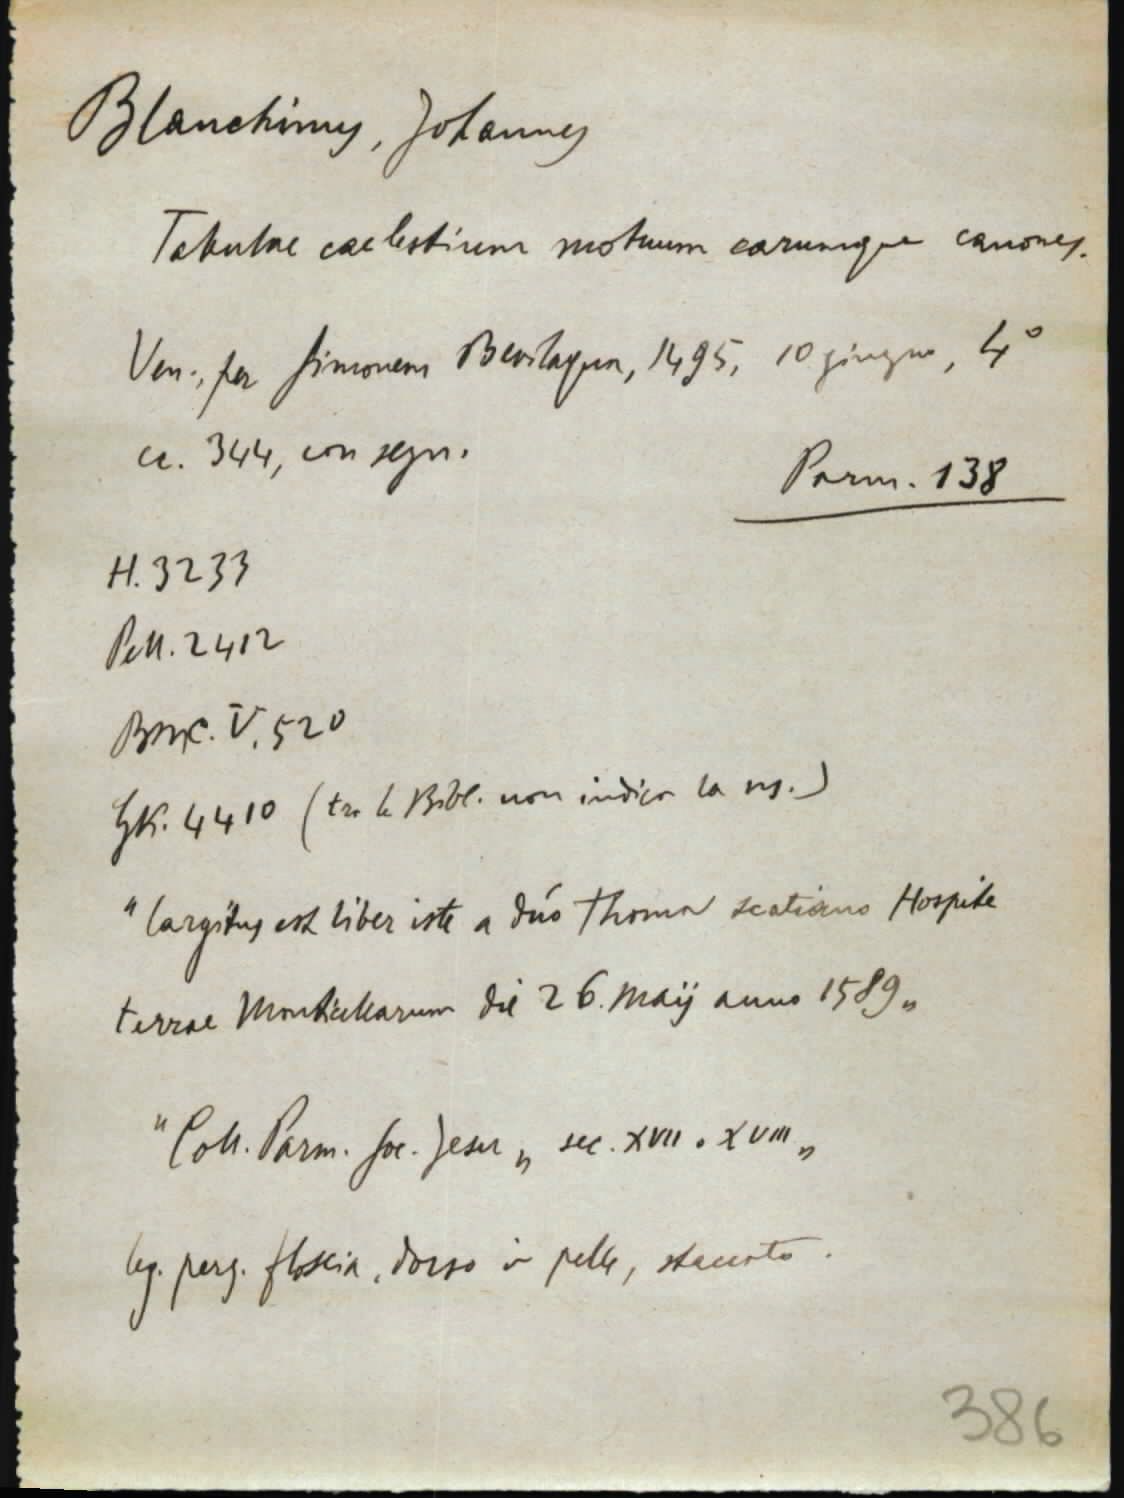 Blanchinus, Johannes
Tabulae caelestium motuum earumque canones.
Ven., per Simonem Bevilaqua, 1495, 10 giugno, 4°
cc. 344, con segn.
Parm. 138
H. 3233
Pell. 2412
BMC. V, 520
GK. 4410 (tra le Bibl. non indica la ns.)
"largitus est liber iste a dño Thoma scatiano Hospite
terrae Monticellarum die 26. Maij anno 1589„
"Coll. Parm. Soc. Jesu„ sec. XVII o XVIII„
leg. perg. floscia, dorso in pelle, staccato.
386